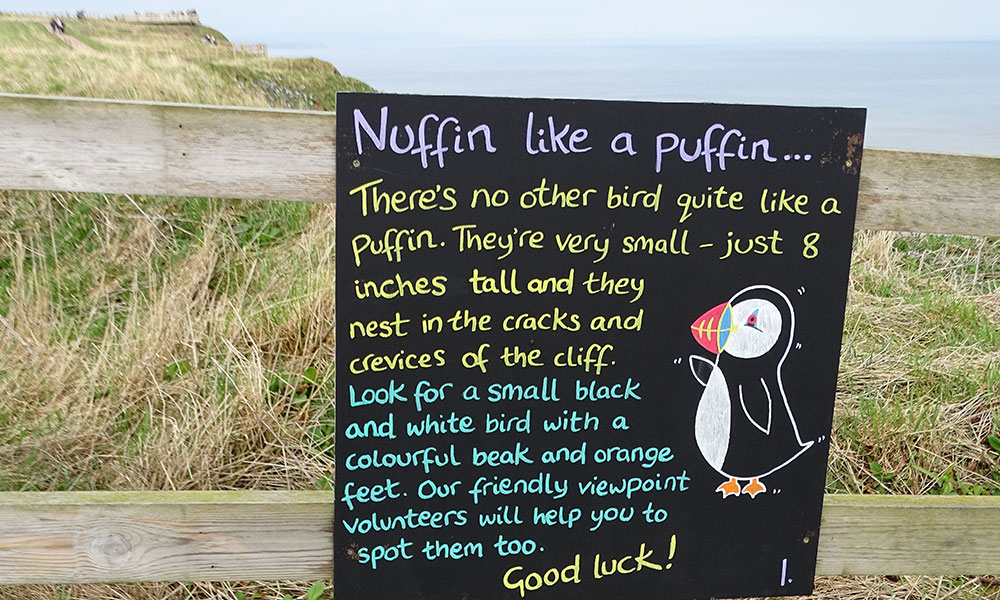 Nuffin like a puffin...
There's no other bird quite like a
puffin. They're very small - just 8
inches tall and they
nest in the cracks and
crevices of the cliff.
Look for a small black
and white bird with a
colourful beak and orange
feet. Our friendly viewpoint
volunteers will help you to
spot them too.
Good luck!
1.